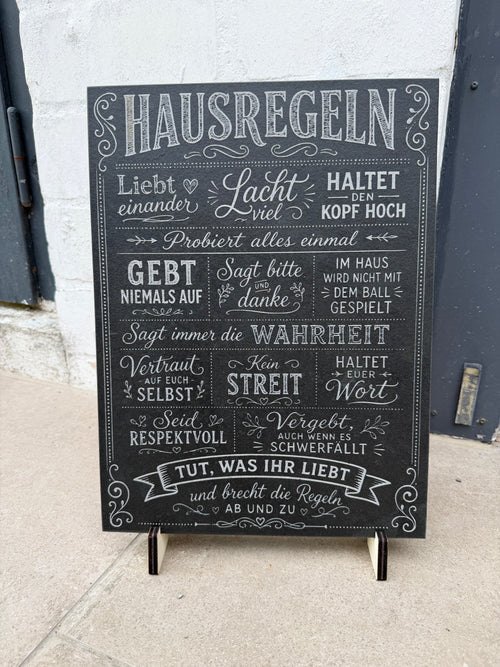 HAUSREGELN
Liebt
einander
Lacht
viel
HALTET
DEN
KOPF HOCH
Probiert alles einmal
GEBT
NIEMALS AUF
Sagt bitte
UND
danke
IM HAUS
WIRD NICHT MIT
DEM BALL
GESPIELT
Sagt immer die WAHRHEIT
Vertraut
AUF EUCH
SELBST
Kein
STREIT
HALTET
EUER
Wort
Seid
RESPEKTVOLL
Vergebt,
AUCH WENN ES
SCHWERFÄLLT
TUT, WAS IHR LIEBT
und brecht die Regeln
AB UND ZU